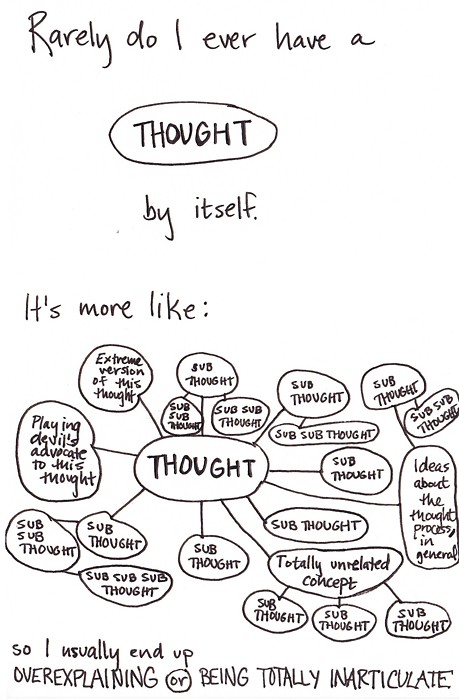 Rarely do I ever have a
THOUGHT
by itself.
It's more like:
Extreme
version
of this
thought
SUB
THOUGHT
SUB
SUB
THOUGHT
SUB SUB
THOUGHT
SUB
THOUGHT
SUB SUB THOUGHT
SUB
THOUGHT
SUB SUB
THOUGHT
Playing
devil's
advocate
to this
thought
THOUGHT
SUB
THOUGHT
Ideas
about
the
thought
process,
in
general
SUB
SUB
THOUGHT
SUB
THOUGHT
SUB SUB SUB
THOUGHT
SUB
THOUGHT
SUB THOUGHT
Totally unrelated
concept
SUB
THOUGHT
SUB
THOUGHT
SUB
THOUGHT
so I usually end up
OVEREXPLAINING or BEING TOTALLY INARTICULATE.